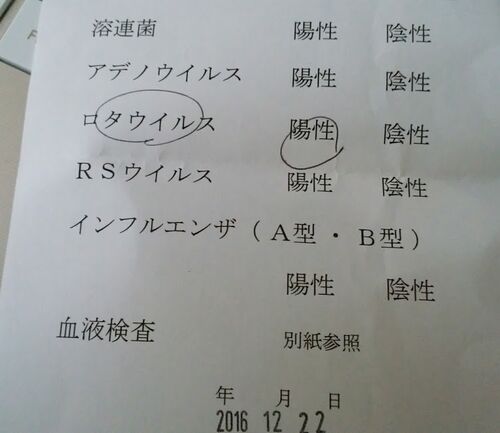 溶連菌 陽性 陰性
アデノウイルス 陽性 陰性
ロタウイルス 陽性 陰性
RSウイルス 陽性 陰性
インフルエンザ(A型・B型)
陽性 陰性
血液検査 別紙参照
年 月 日
2016 12 22